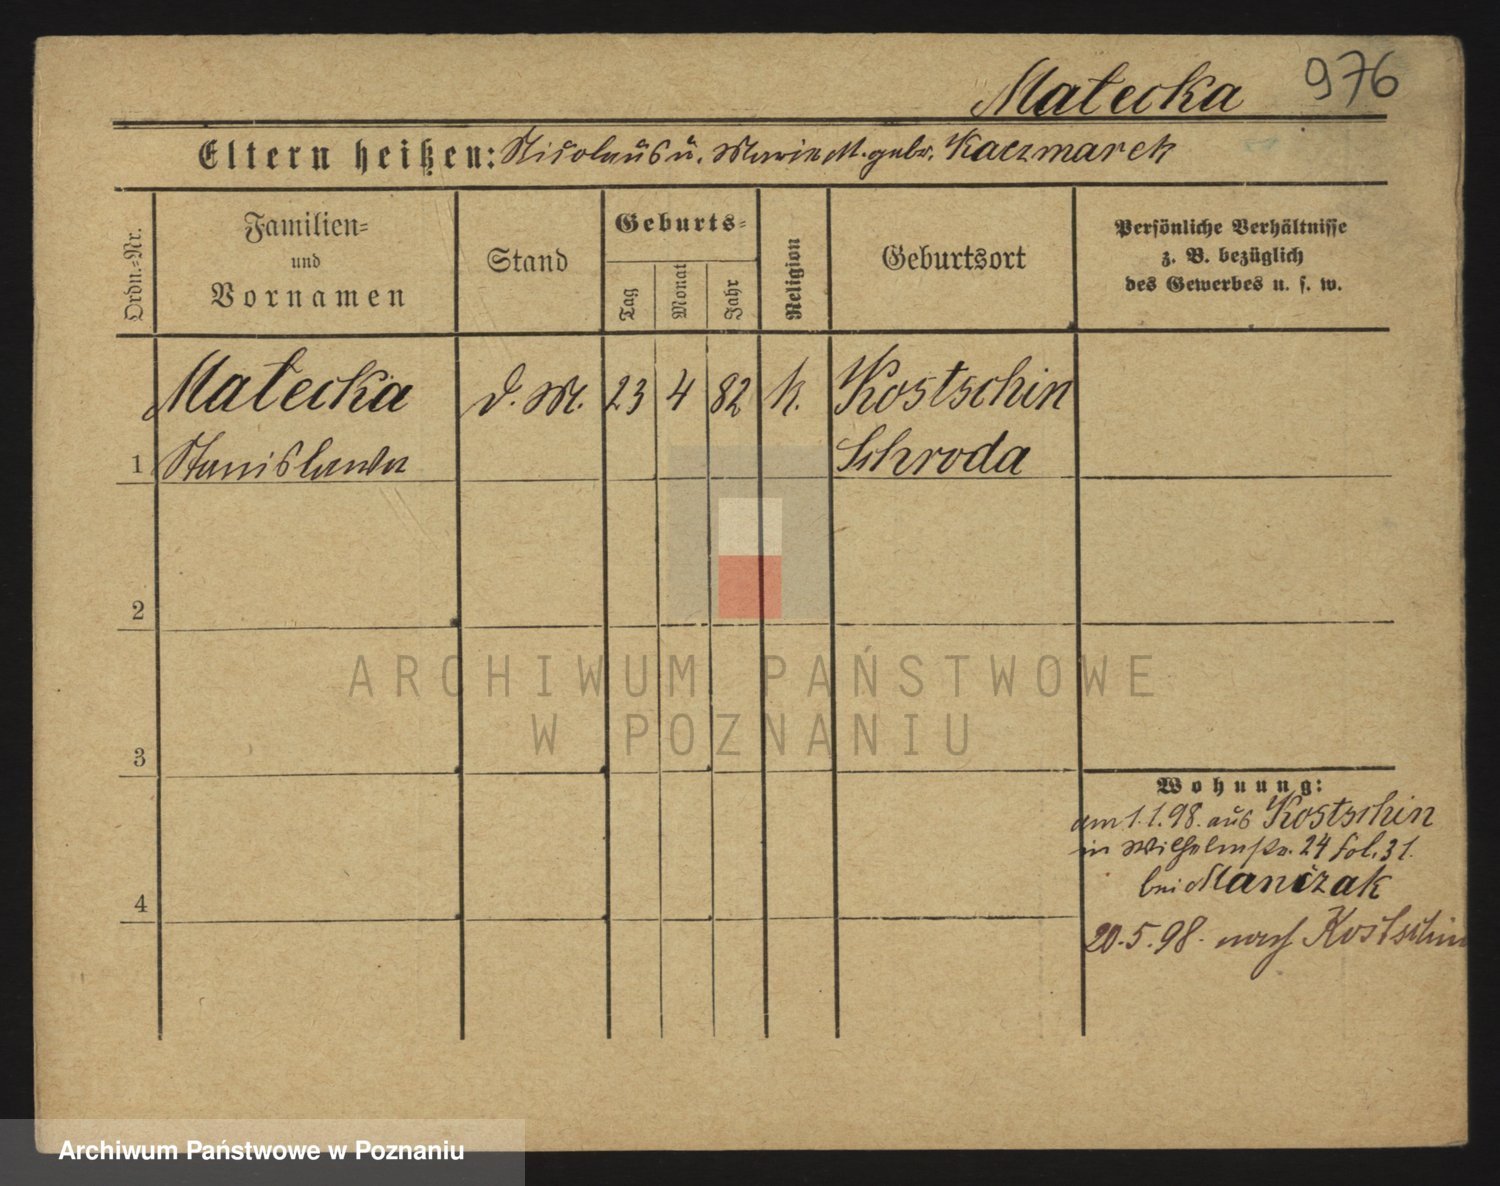 Małecka 976
Eltern heißen: Nicolaus u. Marie M. geb. Kaczmarek
Ordn.-Nr.
Familien-
und
Vornamen
Stand
Geburts-
Tag
Monat
Jahr
Religion
Geburtsort
Persönliche Verhältnisse
z. B. bezüglich
des Gewerbes u. s. w.
Małecka d. M. 23 4 82 k. Kostschin
1 Stanislawa Schroda
2
3
4
Wohnung:
am 1.1.98. aus Kostschin
in Wilhelmstr. 24 fol. 31.
bei Mańczak
20.5.98. nach Kostschin
ARCHIWUM PAŃSTWOWE
W POZNANIU
Archiwum Państwowe w Poznaniu